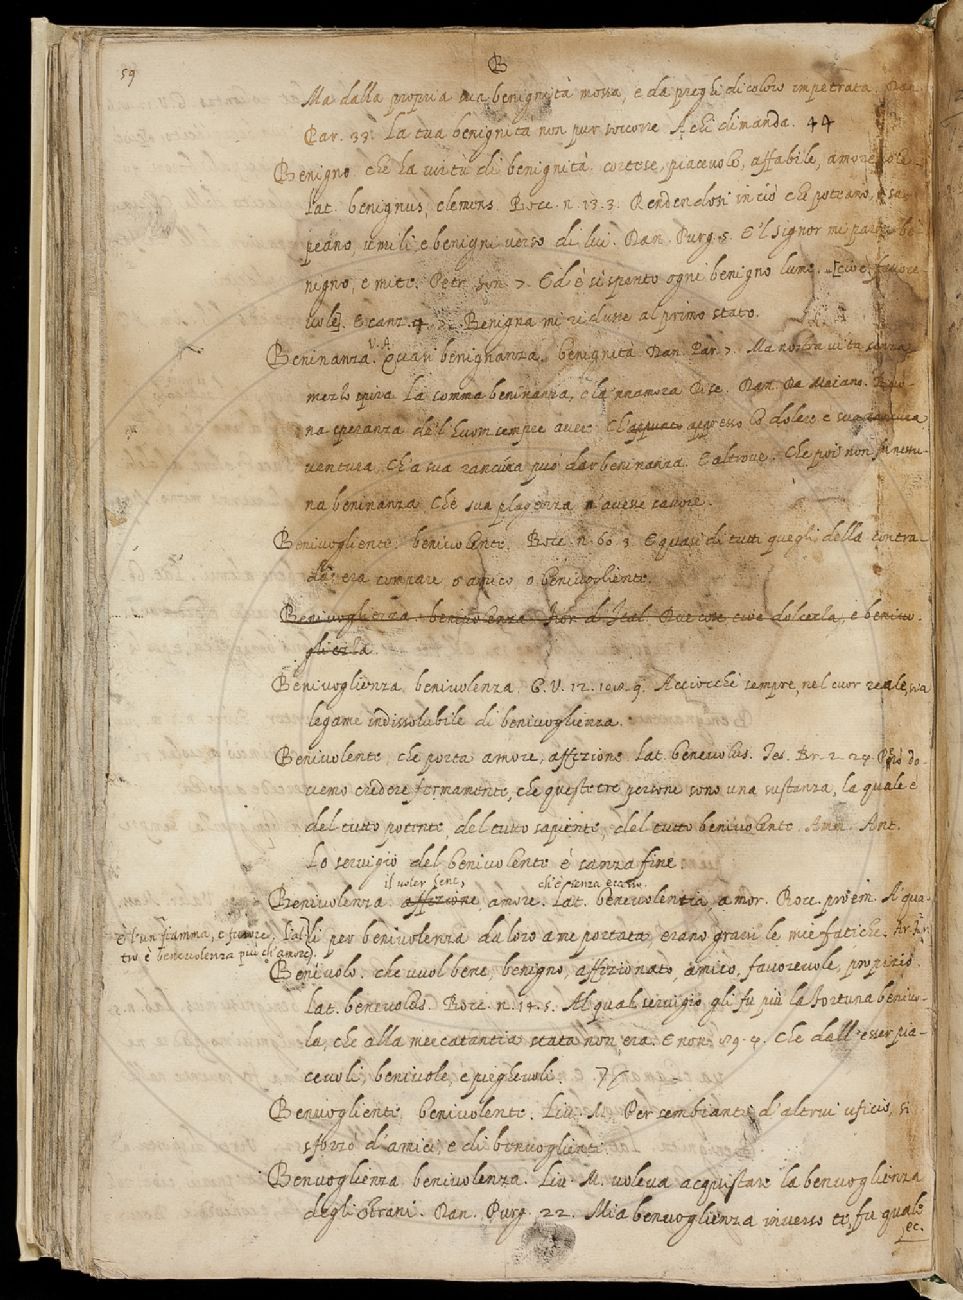 59
B
Ma dalla propria sua benignità mossa, e da preghi di coloro impetrata. Dan.
Par. 33. La tua benignità non pur soccorre A chi dimanda. 44
Benigno. che ha virtù di benignità. cortese, piacevole, affabile, amorevole
Lat. benignus, clemens. Bocc. n. 13. 3. Rendendosi in ciò che potevano, e sa-
peano, umili, e benigni verso di lui. Dan. Purg. 5. E'l Signor mi parve be-
nigno, e mite. Petr. son. 7. Ed è si spento ogni benigno lume. [cioè favore-
vole]. E canz. 4. 7. Benigna mi ridusse al primo stato.
Beninanza. V. A. quasi benignanza. benignità. Dan. Par. 7. Ma nostra vita senza
mezzo spira La somma beninanza, e la innamora Di se. Dan. Da Maiano.
na speranza de'l'huom sempre avere Ch' appresso lo dolore e sua
ventura, Ch'a sua rancura può dar beninanza. E altrove. Che poi non fu nessu-
na beninanza Che sua plagenza n'avesse savore.
Benivogliente. benivolente. Bocc. n. 60. 3. E quasi di tutti quegli della contra-
da era compare o amico o benivogliente.
Benivoglienza. benivolenza. Fior. d'Ital. Due cose, cioè dolcezza, e benivo-
glienza
Benivoglienza. benivolenza. G. V. 12. 108. 9. Acciocchè sempre, nel cuor reale, sia
legame indissolubile di benivoglienza.
Benivolente, che porta amore, affezione. Lat. benevolus. Tes. Br. 2. 24. Però do-
vemo credere fermamente, che queste tre persone sono una sustanza, la quale è
del tutto potente, del tutto sapiente, del tutto benivolente. Amm. Ant.
Lo servigio del benivolente è sanza fine.
il voler bene, ch'è senza
Benivolenza. affezione, amore. Lat. benevolentia, amor. Bocc. proem. A' qua-
li per benivolenza da loro a me portata, erano gravi le mie fatiche.
è l'un fiamma, e furore. l'al-
tro è benevolenza più ch'amore.
Benivolo. che vuol bene, benigno, affezionato, amico, favorevole, propizio.
Lat. benevolus. Bocc. n. 14. 5. Al qual servigio gli fu più la fortuna benivo-
la, che alla mercatantia stata non era. E nov. 89. 4. Che dall'esser pia-
cevoli, benivole, e pieghevoli.
Benvogliente, benivolente. Liv. M. Per sembianti d'altrui uficio, si
sforzò d'amici, e di benvoglienti.
Benvoglienza. benivolenza. Liv. M. voleva acquistare la benvoglienza
degli strani. Dan. Purg. 22. Mia benvoglienza inverso te fu quale
ec.